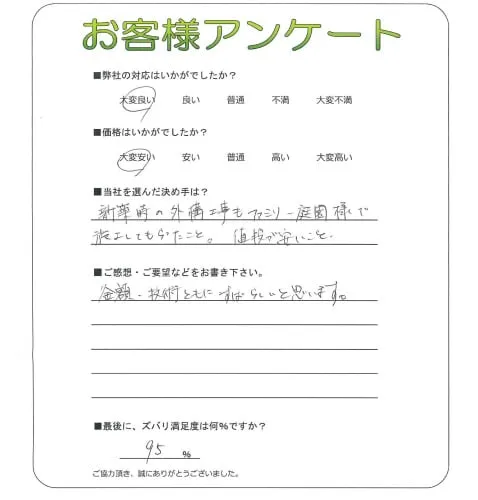 お客様アンケート
■弊社の対応はいかがでしたか？
大変良い 良い 普通 不満 大変不満
■価格はいかがでしたか？
大変安い 安い 普通 高い 大変高い
■当社を選んだ決め手は？
新築時の外構工事もファミリー庭園様で
施工してもらったこと。値段が安いこと。
■ご感想・ご要望などをお書き下さい。
金額・技術ともにすばらしいと思います。
■最後に、ズバリ満足度は何%ですか？
95 %
ご協力頂き、誠にありがとうございました。